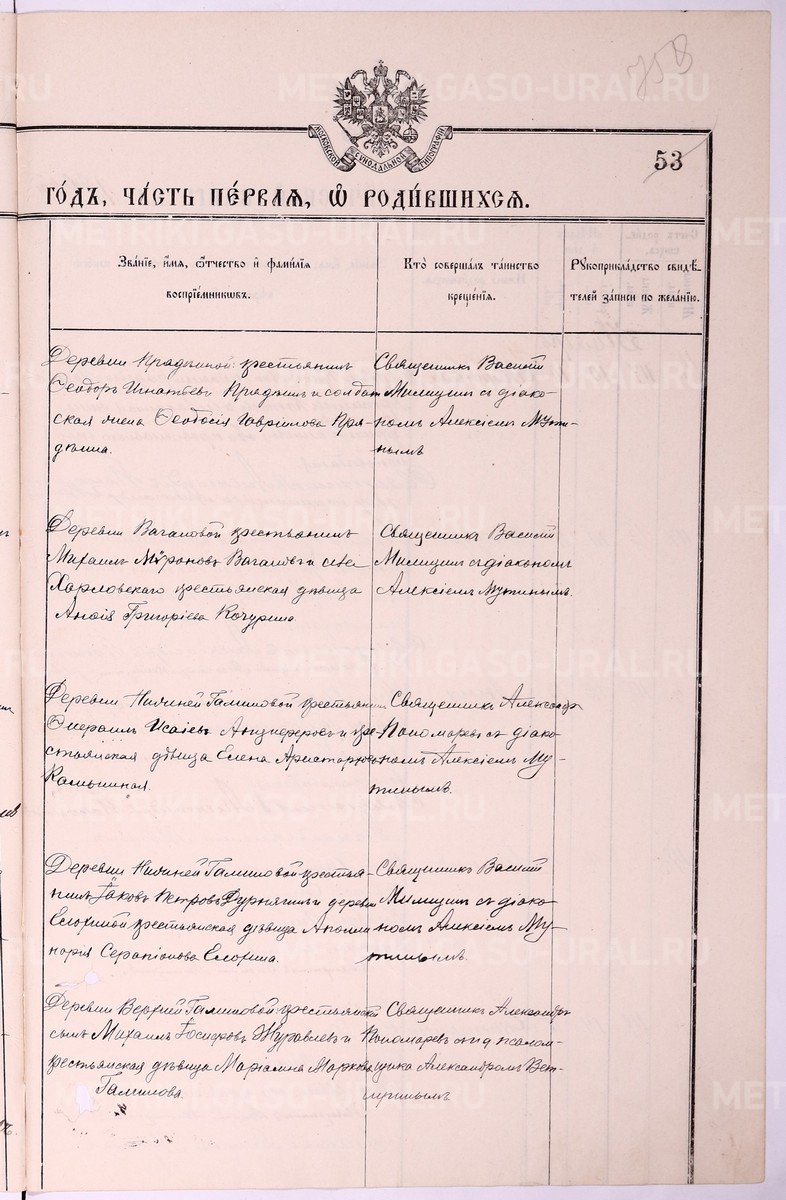 758
МОСКОВСКОЙ СѴНОДАЛЬНОЙ ТИПОГРАФІИ
53
ГО́ДЪ, ЧА́СТЬ ПЕ́РВАЯ, Ѽ РОДИ́ВШИХСЯ.
Зва́нїе, и҆́мя, ѻ҆́тчество и҆ фами́лїя
воспрїе́мникѡвъ.
Кто̀ соверша́лъ та́инство
креще́нїя.
Рꙋкоприкла́дство свидѣ́-
телей за́писи по жела́нїю.
Деревни Прядѣиной крестьянинъ
Ѳеодоръ Игнатьевъ Прядѣинъ и солдат
ская жена Ѳеодосія Гавріилова Пря-
дѣина.
Священникъ Василій
Милицинъ съ діако-
номъ Алексіемъ Мути-
нымъ
Деревни Вагановой крестьянинъ
Михаилъ Мѵроновъ Вагановъ и села
Харловскаго крестьянская дѣвица
Григоріева Кочурина.
Священникъ Василій
Милицинъ съ діакономъ
Алексіемъ Мутинымъ.
Деревни Нижней Галишовой крестьянинъ
Исаіевъ Анциферовъ и кре-
стьянская дѣвица Елена Аристархова
Камыгиная.
Священникъ Александръ
Пономаревъ съ діако-
номъ Алексіемъ Му-
тинымъ.
Деревни Нижней Галишовой крестья-
нинъ Іаковъ Петровъ Фурнягинъ и деревни
Елохиной крестьянская дѣвица Аполли
нарія Серапіонова Елохина.
Священникъ Василій
Милицинъ съ діако-
номъ Алексіемъ Му-
тинымъ.
Деревни Верхней Галишовой крестьянскій
сынъ Михаилъ Іосифовъ Журавлевъ и
крестьянская дѣвица Маріамна Маркова
Галишова.
Священникъ Александръ
Пономаревъ псалом-
щика Александромъ Вет-